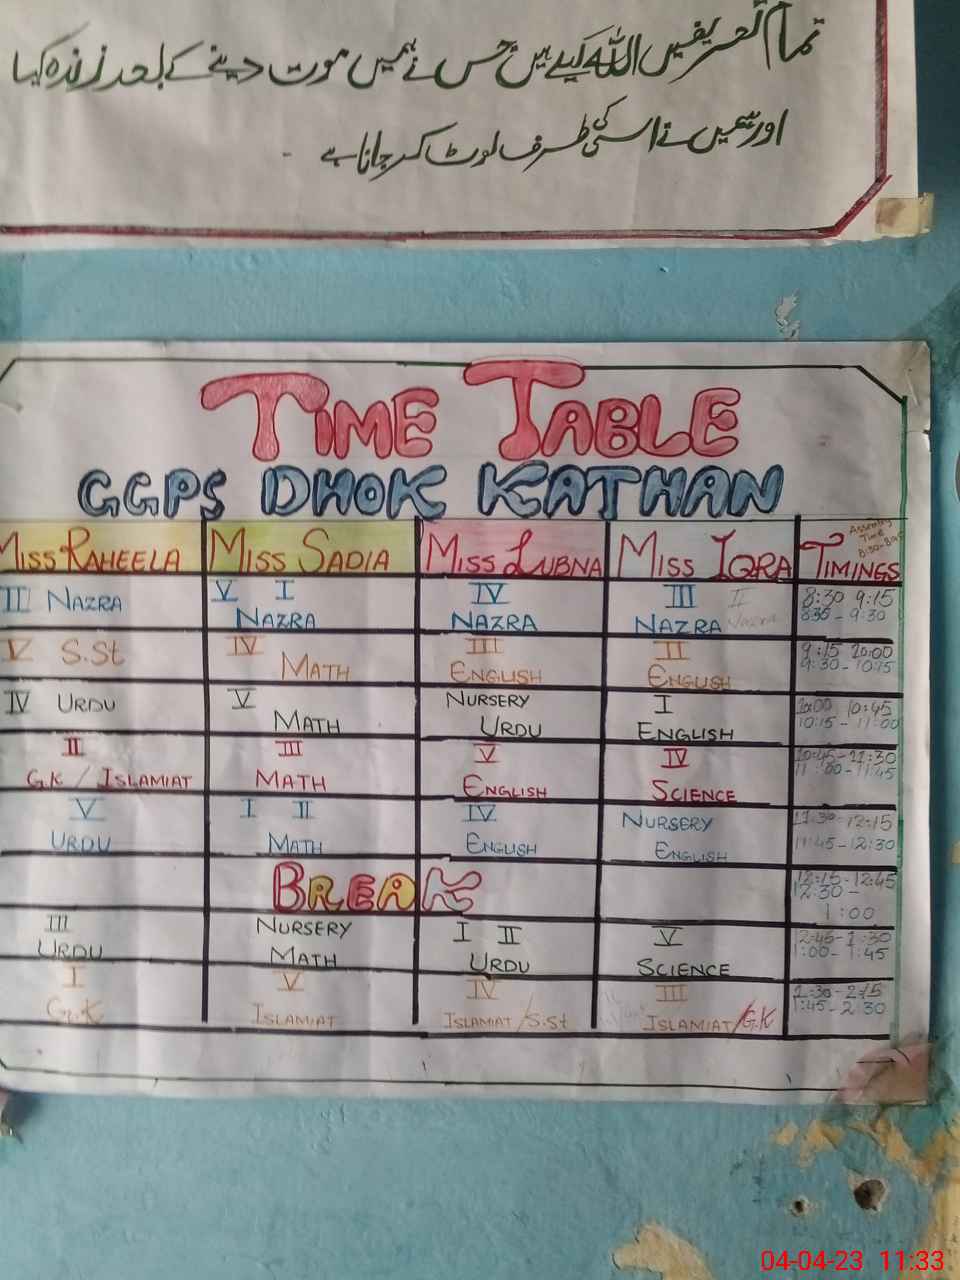 تمام تعریفیں اللہ کیلئے ہیں جس نے ہمیں موت دینے کے بعد زندہ کیا
اور ہمیں نے اسی کی طرف لوٹ کر جانا ہے -
TIME TABLE
GGPS DHOK KATHAN
MISS RAHEELA MISS SADIA MISS LUBNA MISS IQRA TIMINGS
Assembly
Time
III NAZRA
V I
NAZRA
IV
NAZRA
III II
NAZRA Nazra
8:30 9:15
8:30 - 9:30
V S.St
IV
MATH
III
ENGLISH
II
ENGLISH
9:15 10:00
9:30 - 10:15
IV URDU
V
MATH
NURSERY
URDU
I
ENGLISH
10:00 10:45
10:15 - 11:00
II
G.K / ISLAMIAT
III
MATH
V
ENGLISH
IV
SCIENCE
10:45 - 11:30
11:00 - 11:45
V
URDU
I II
MATH
IV
ENGLISH
NURSERY
ENGLISH
11:30 - 12:15
11:45 - 12:30
BREAK
12:15 - 12:45
12:30 -
1:00
III
URDU
NURSERY
MATH
I II
URDU
V
SCIENCE
12:45 - 1:30
1:00 - 1:45
I
G.K
V
ISLAMIAT
IV
ISLAMIAT / S.St
III
ISLAMIAT / G.K
1:30 - 2:15
1:45 - 2:30
04-04-23 11:33